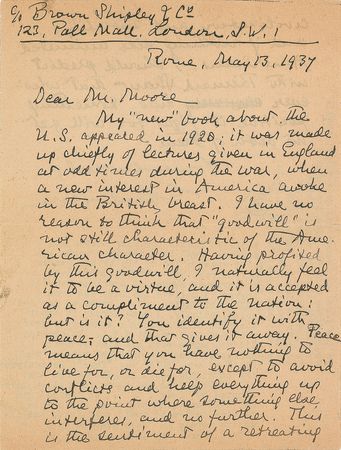 C/o Brown Shipley & Co
123, Pall Mall, London, S.W. 1
Rome, May 13, 1937
Dear Mr. Moore
My "new" book about the
U.S. appeared in 1920; it was made
up chiefly of lectures given in England
at odd times during the war, when
a new interest in America awoke
in the British breast. I have no
reason to think that "goodwill" is
not still characteristic of the Ame-
rican character. Having profited
by this goodwill, I naturally feel
it to be a virtue, and it is accepted
as a compliment to the nation:
but is it? You identify it with
peace; and that gives it away. Peace
means that you have nothing to
live for, or die for, except to avoid
conflicts and help everything up
to the point where something else
interferes, and no further. This
is the sentiment of a retreating